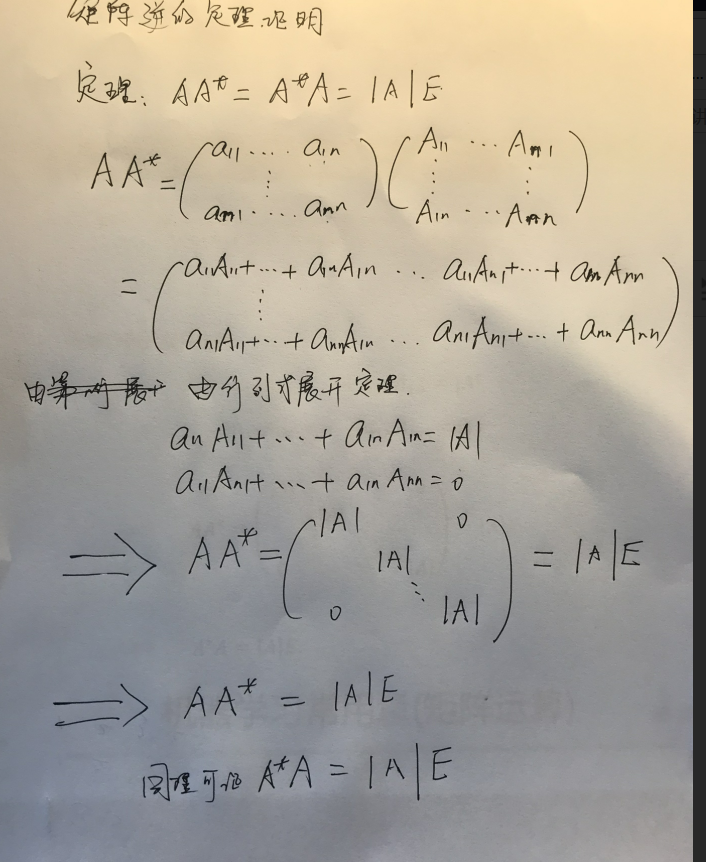 矩阵逆的定理证明
定理: AA* = A*A = |A|E
AA* = ( a11 .... a1n ) ( A11 ... An1 )
⋮ ⋮ ⋮
an1 .... ann A1n ... Ann
= ( a11A11+...+ a1nA1n ... a11An1+...+ a1nAnn )
⋮
an1A11+...+ annA1n ... an1An1+...+ annAnn
由 由行列式展开定理.
a11A11+...+ a1nA1n = |A|
a11An1+...+ a1nAnn = 0
⟹ AA* = ( |A| 0 ) = |A|E
|A|
⋱
0 |A|
⟹ AA* = |A|E
同理可证 A*A = |A|E